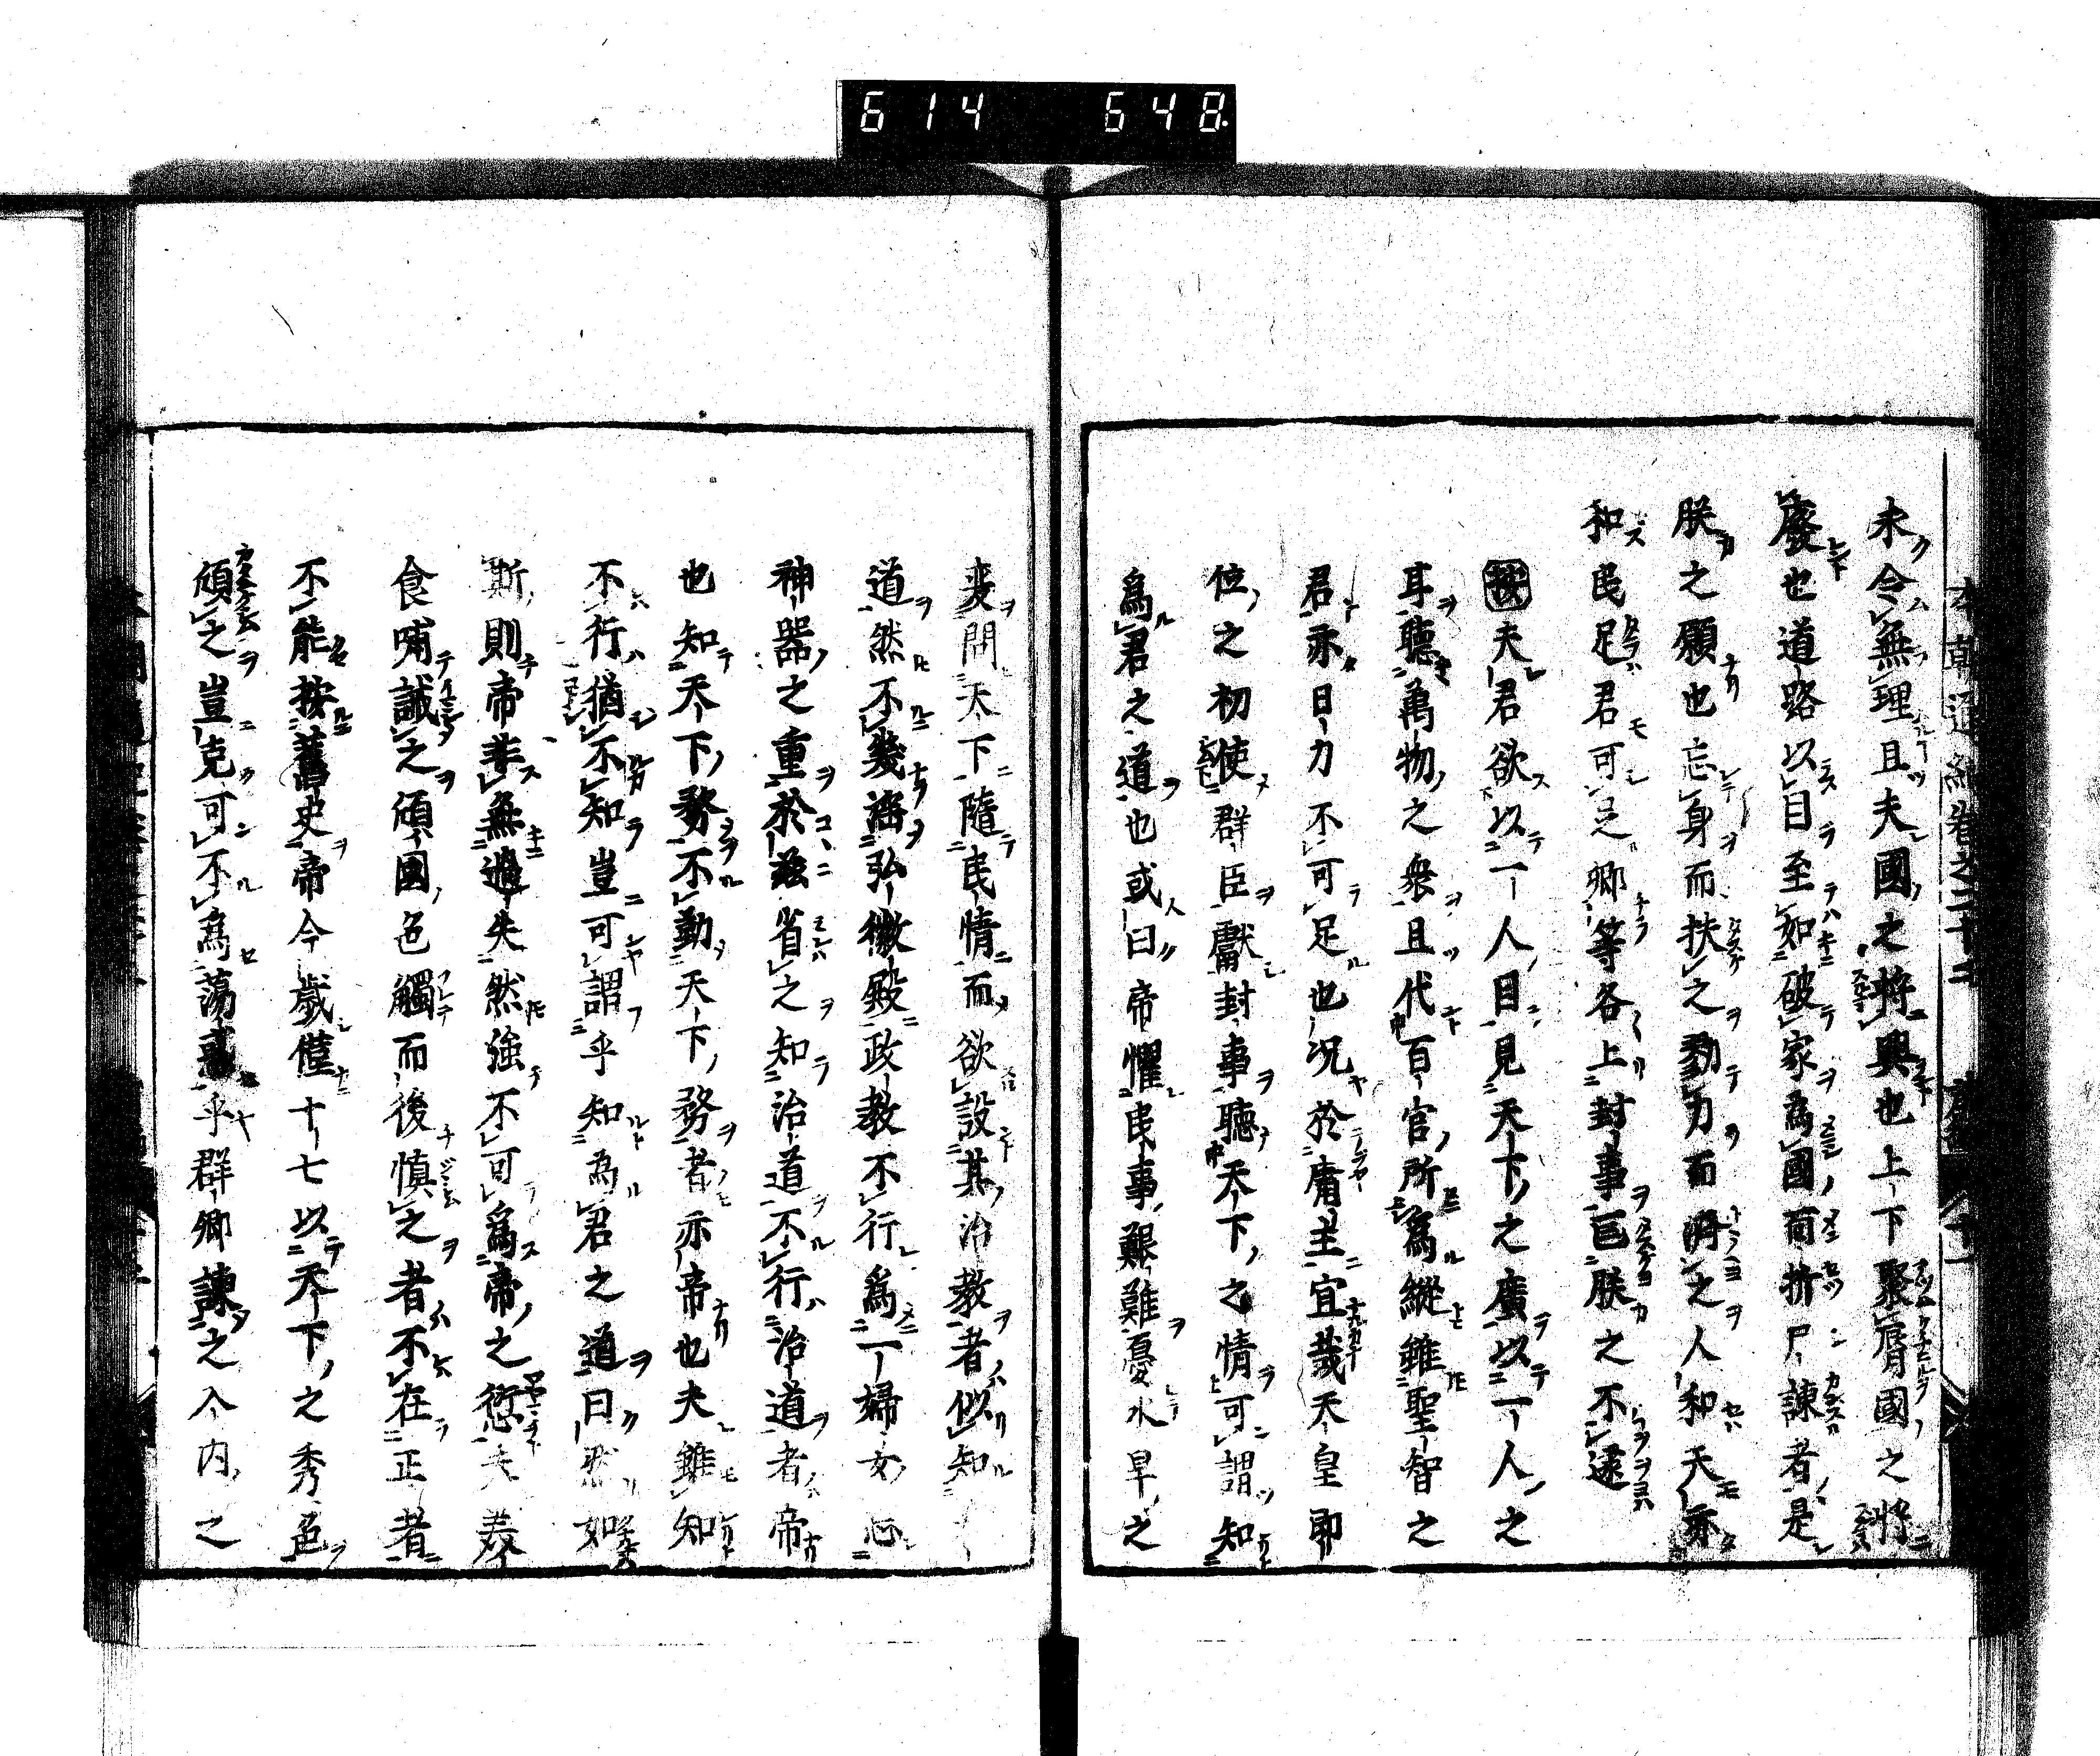 614 648
未令無理且夫國之將興也上下聚脣國之將
廢也道路以目至如破家為國而折尸諫者是
朕之願也忘身而扶之勠力而將之人和天亦
和民足君可足卿等各上封事匡朕之不逮
夫君欲以一人目見天下之廣以一人之
耳聽萬物之衆且代百官所爲縱雖聖智之
君亦日力不可足也况於庸主宜哉天皇即
位之初使群臣獻封事聽天下之情可謂知
爲君之道也或曰帝懼民事艱難憂水旱之
問天下隨民情而欲設其治教者似知
道然不幾済弘徽殿政教不行爲一婦女心
神器之重於茲省之知治道不行治道者帝
也知天下務不勤天下務者亦帝也夫雖知
不行猶不知豈可謂乎知為君之道曰然如
斯則帝非無過失然強不可爲帝之愆夫
食哺誡之傾國色觸而後慎之者不在正者
不能按舊史帝今歲僅十七以天下之秀色
傾之豈克可不爲蕩惑乎群卿諫之入内之